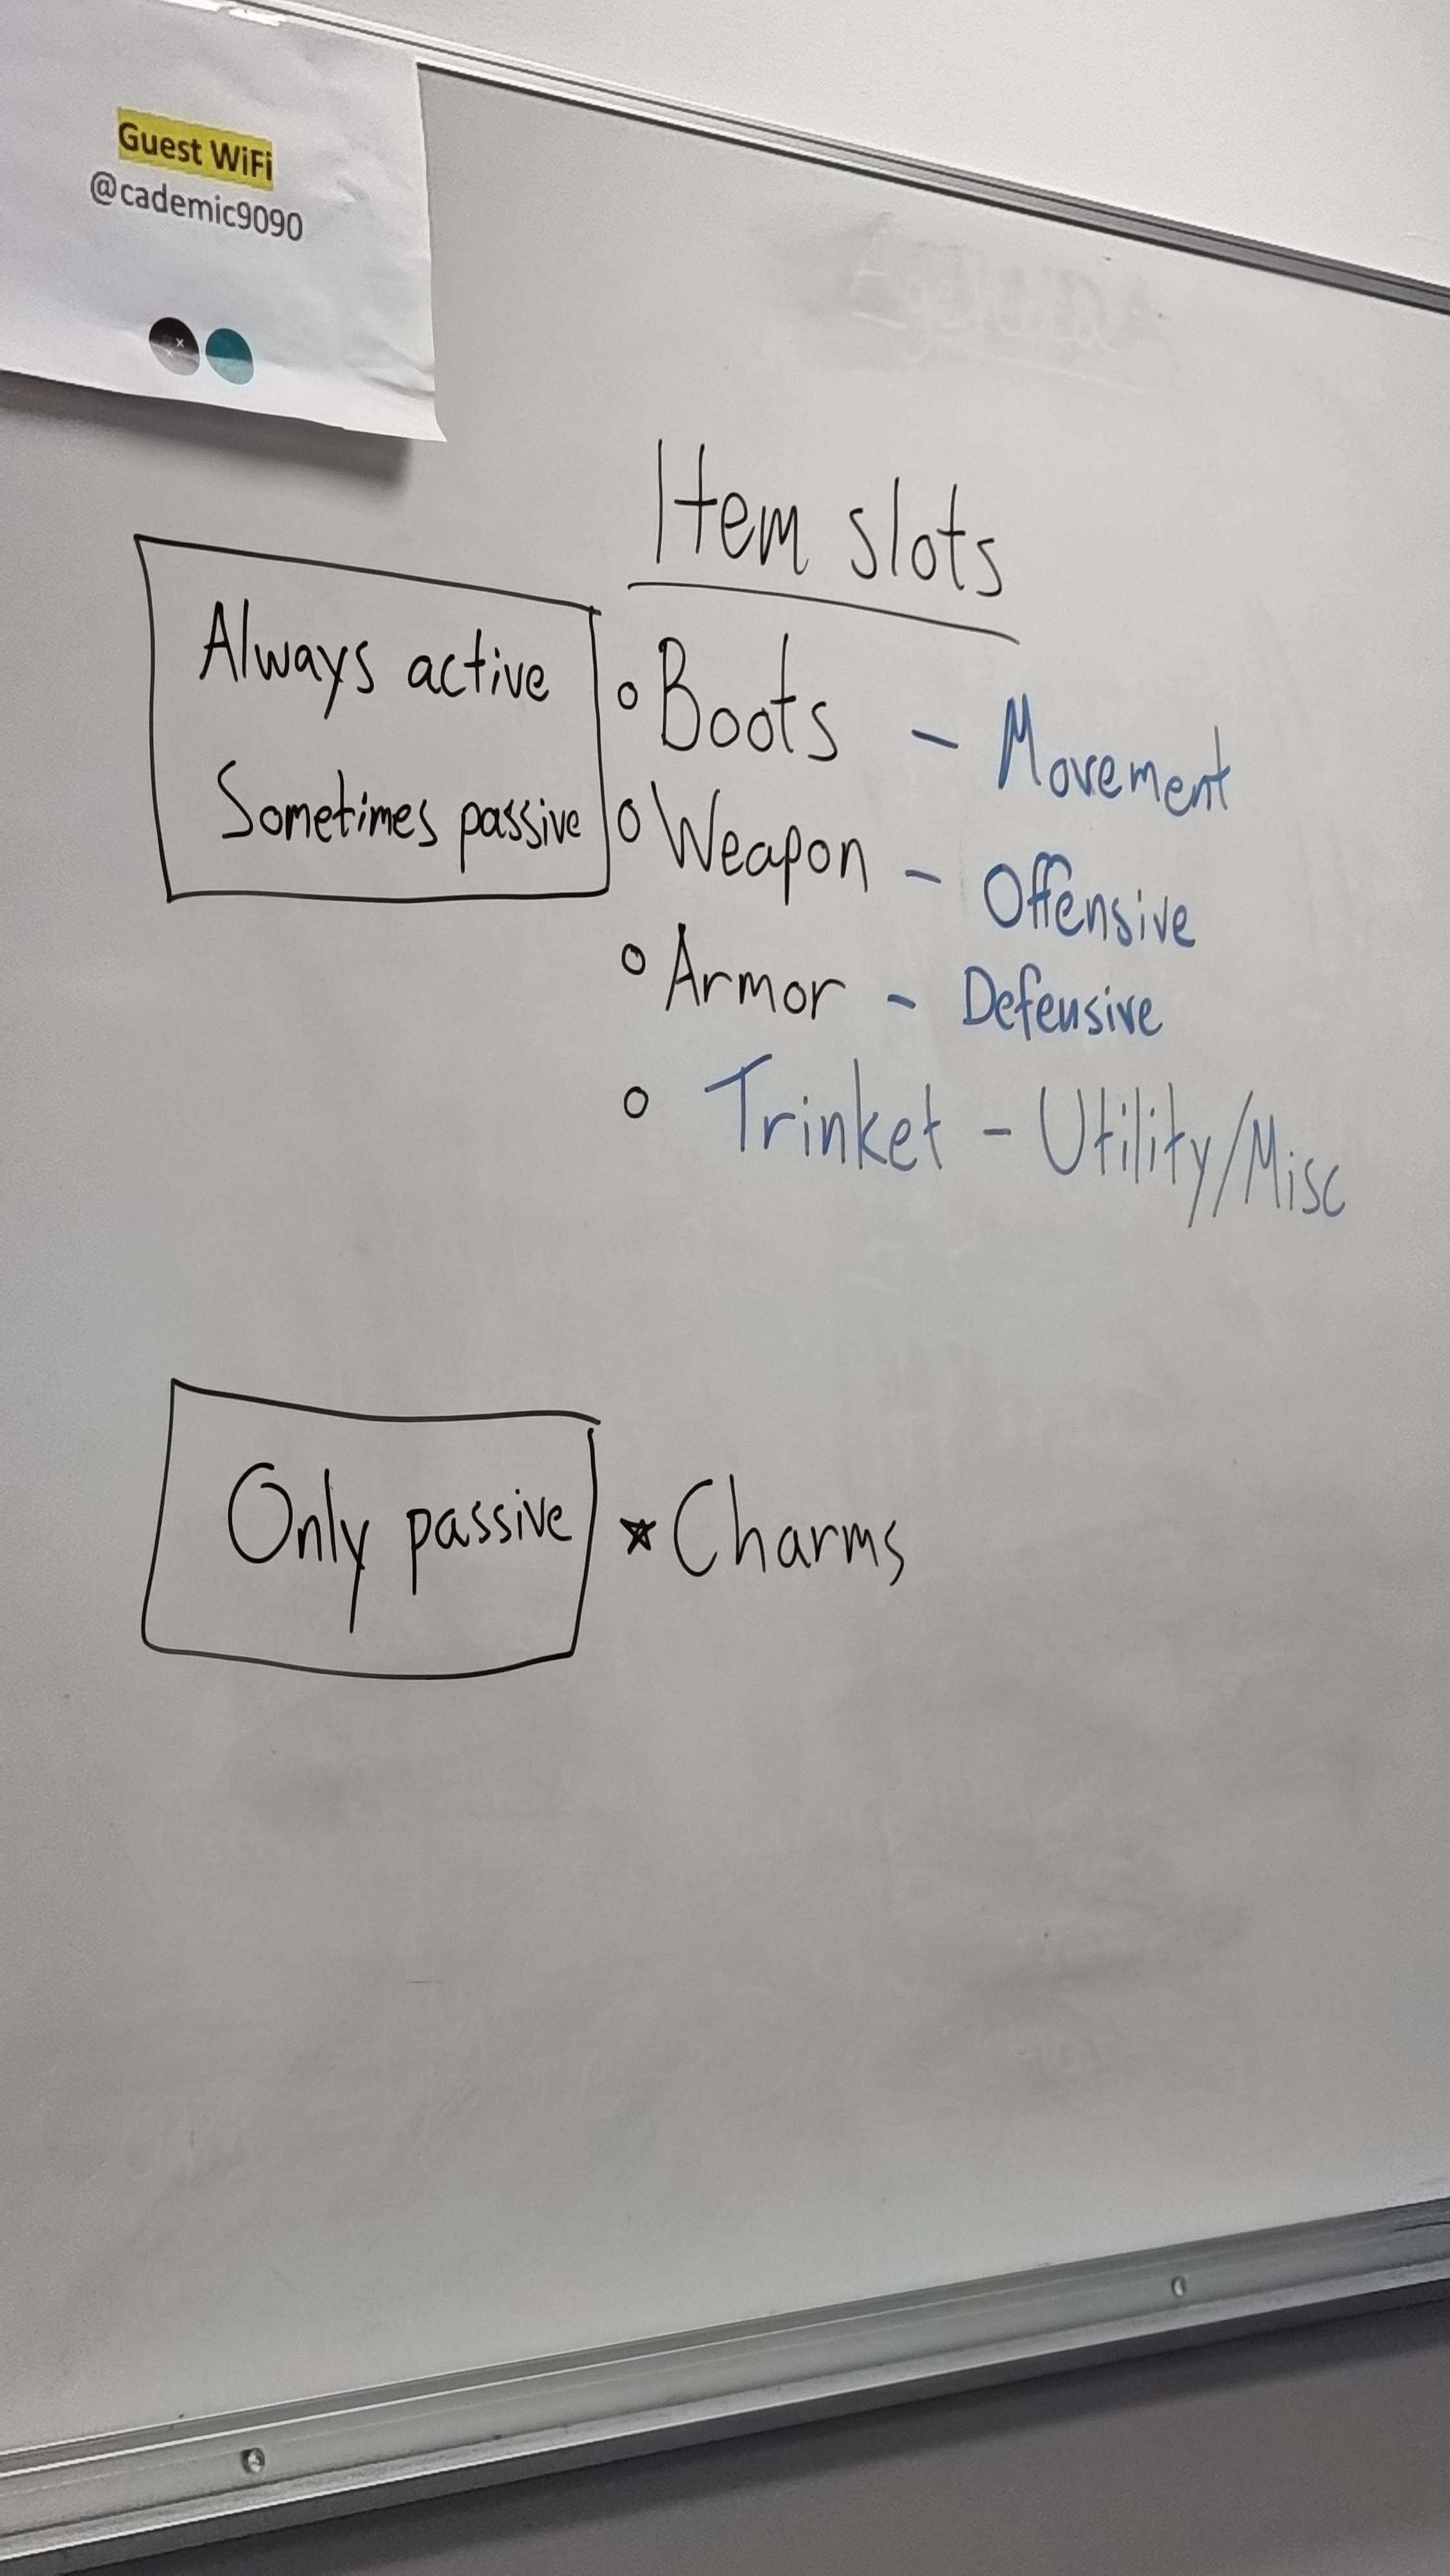 Guest WiFi
@cademic9090
Item slots
Always active
Sometimes passive
○ Boots – Movement
○ Weapon – Offensive
○ Armor – Defensive
○ Trinket – Utility/Misc
Only passive
★ Charms